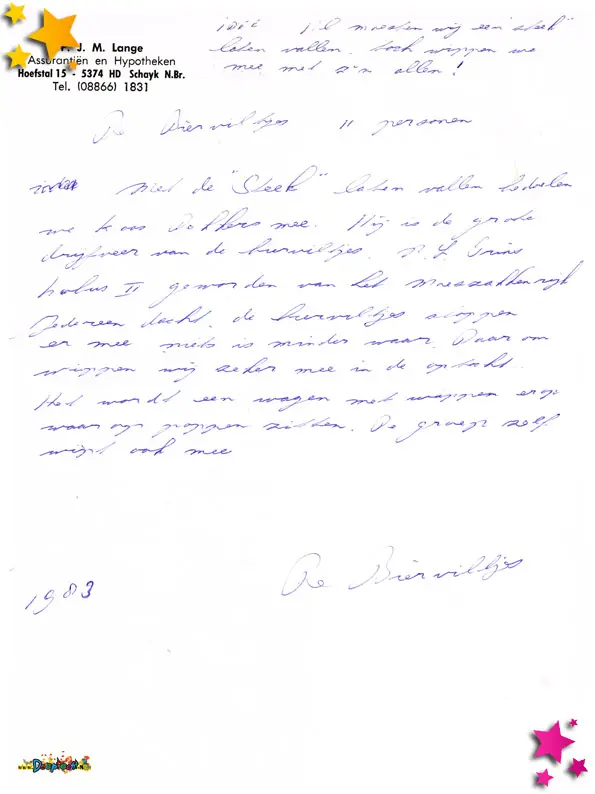 J. M. Lange
Assurantiën en Hypotheken
Hoefstal 15 - 5374 HD Schayk N.Br.
Tel. (08866) 1831
idee moesten wij een "steek"
laten vallen. Toch wippen we
mee met z'n allen!
De Bierviltjes 11 personen
Met de "Steek" laten vallen bedoelen
we Dekkers mee. Hij is de grote
drijfveer van de bierviltjes. Prins
II geworden van het Moeszakkenrijk
Iedereen dacht, de bierviltjes stoppen
er mee niets is minder waar. Daarom
wippen wij zeker mee in de optocht.
Het wordt een wagen met wippen erop
waarop poppen zitten. De groep zelf
wipt ook mee
De Bierviltjes
1983